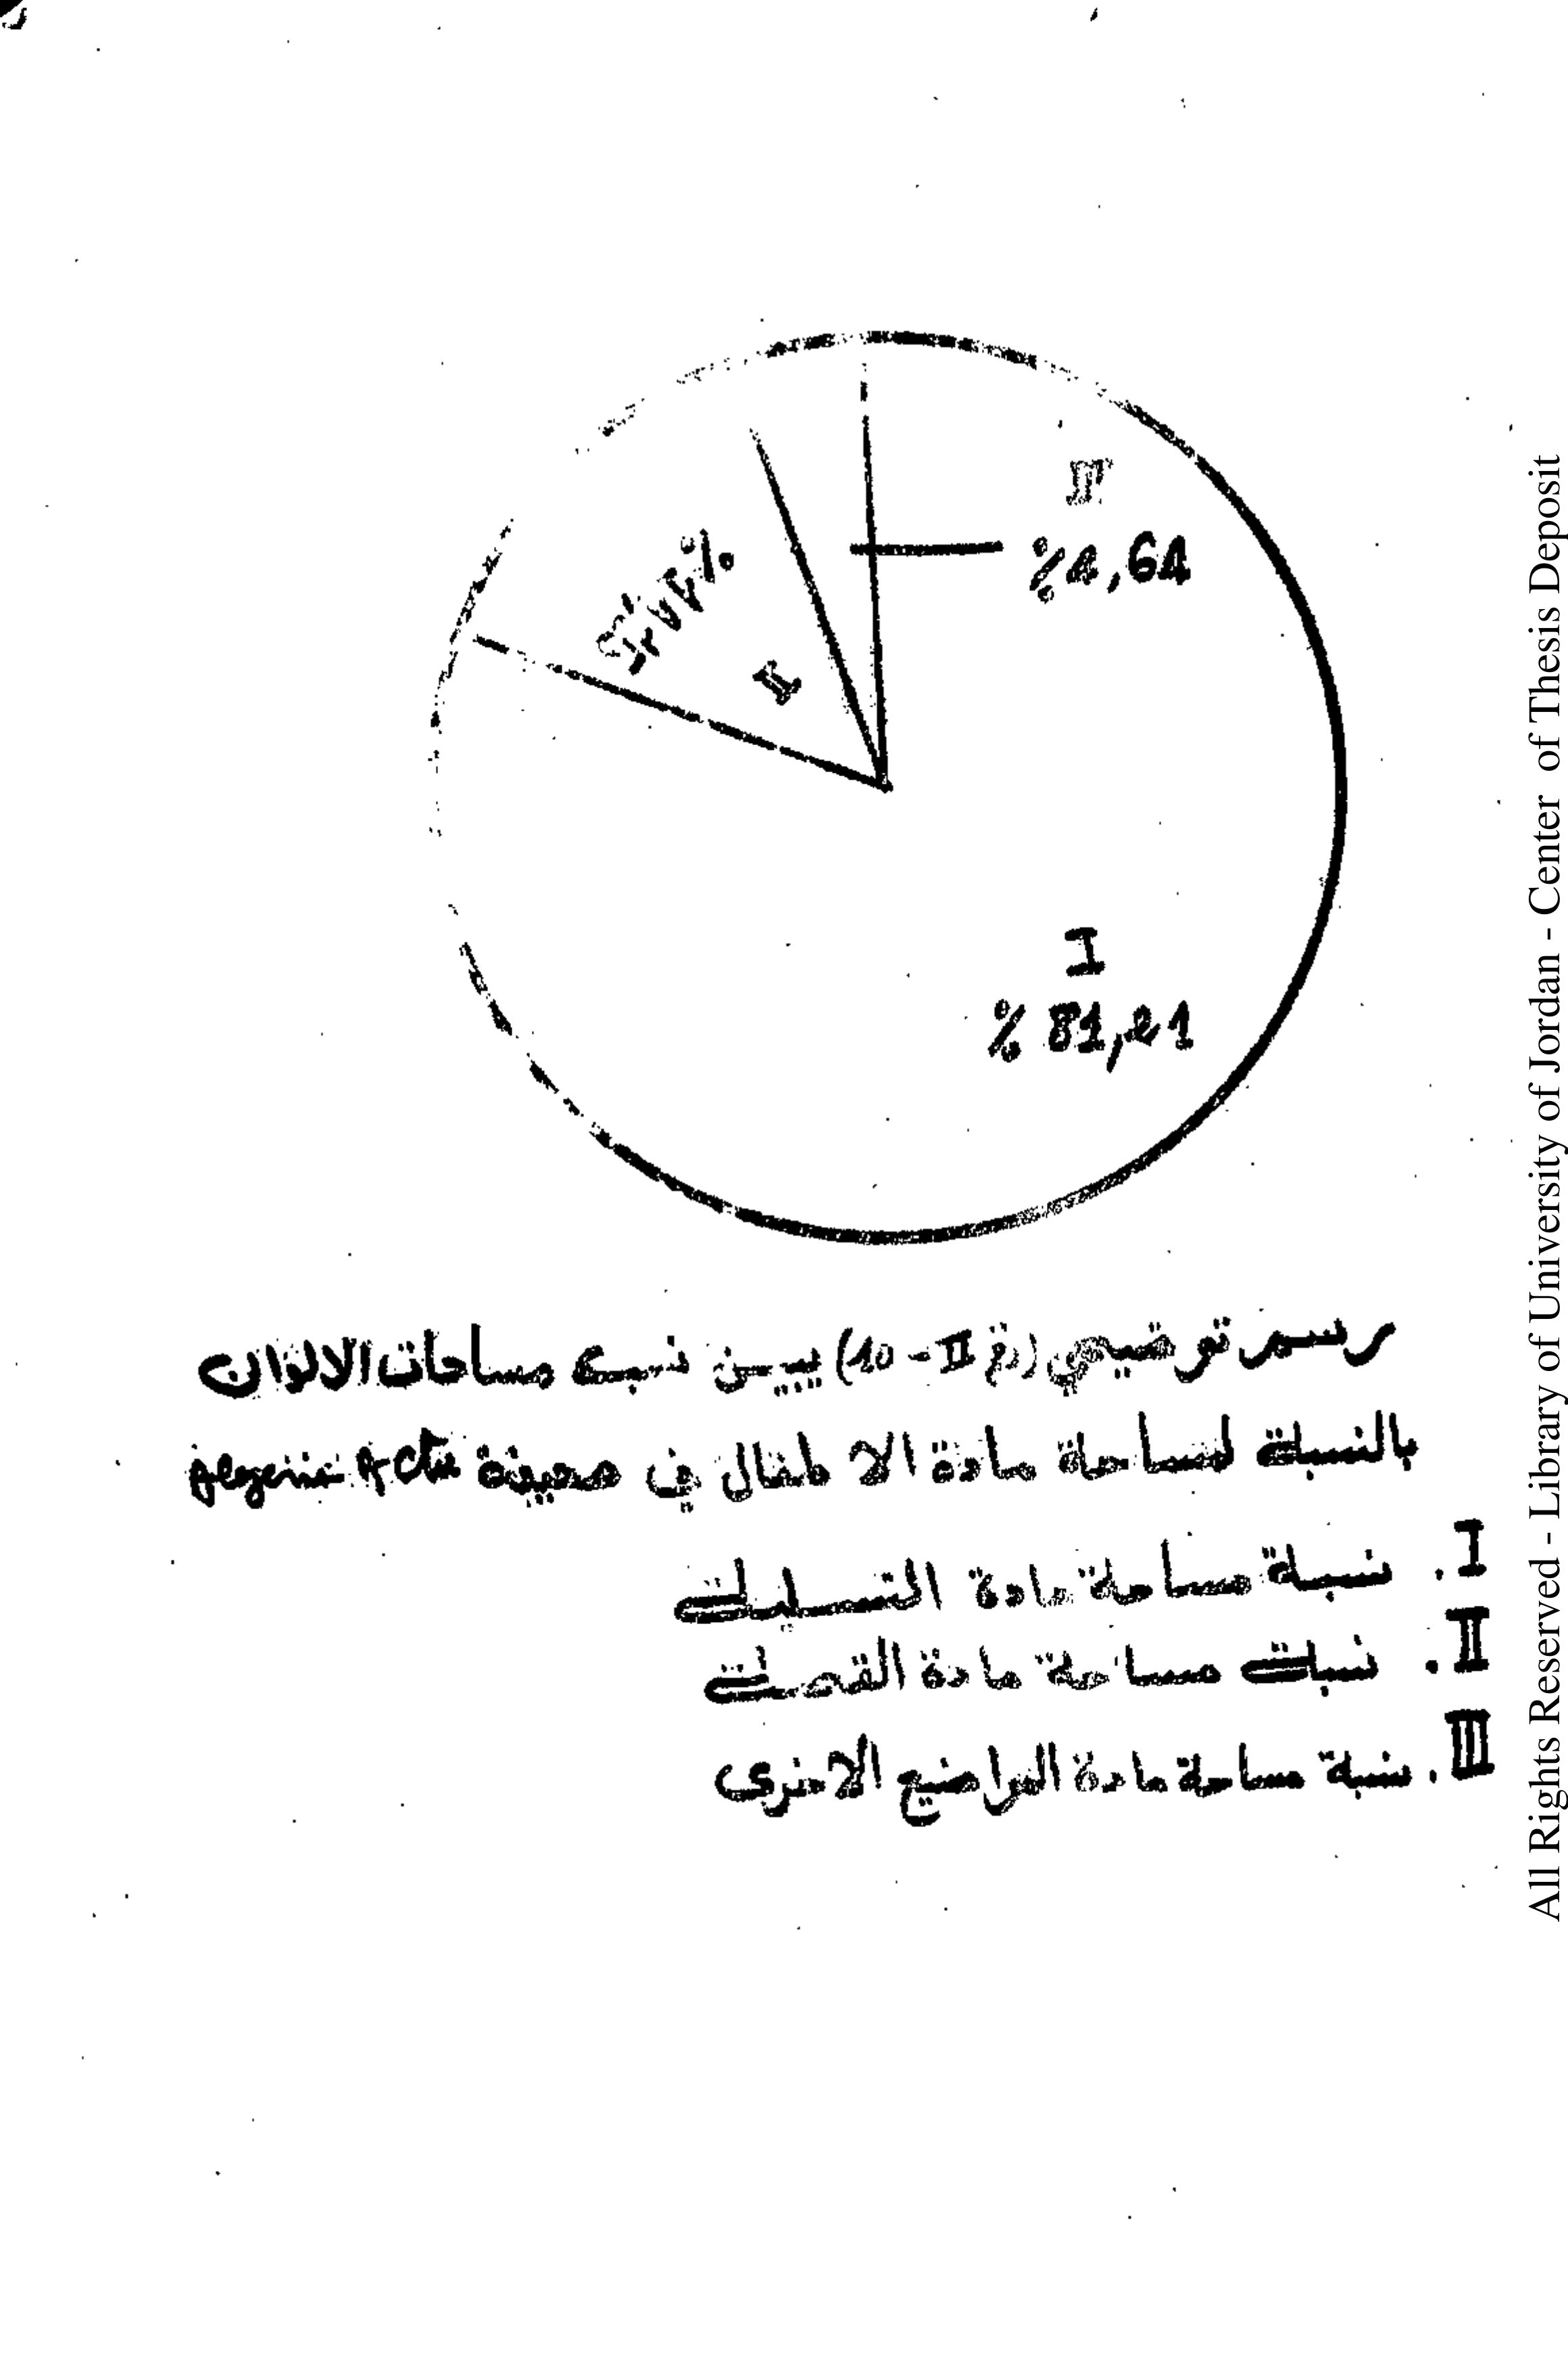 III
% 4,64
II
I
% 81,21
رسم توضيحي (رقم II - 10) يبين نسب مساحات الالوان
بالنسبة لمساحة مادة الاطفال في صحيفة Algerie Actu
I. نسبة مساحة مادة التسلية
II. نسبة مساحة مادة القصة
III. نسبة مساحة مادة المواضيع الاخرى
All Rights Reserved - Library of University of Jordan - Center of Thesis Deposit